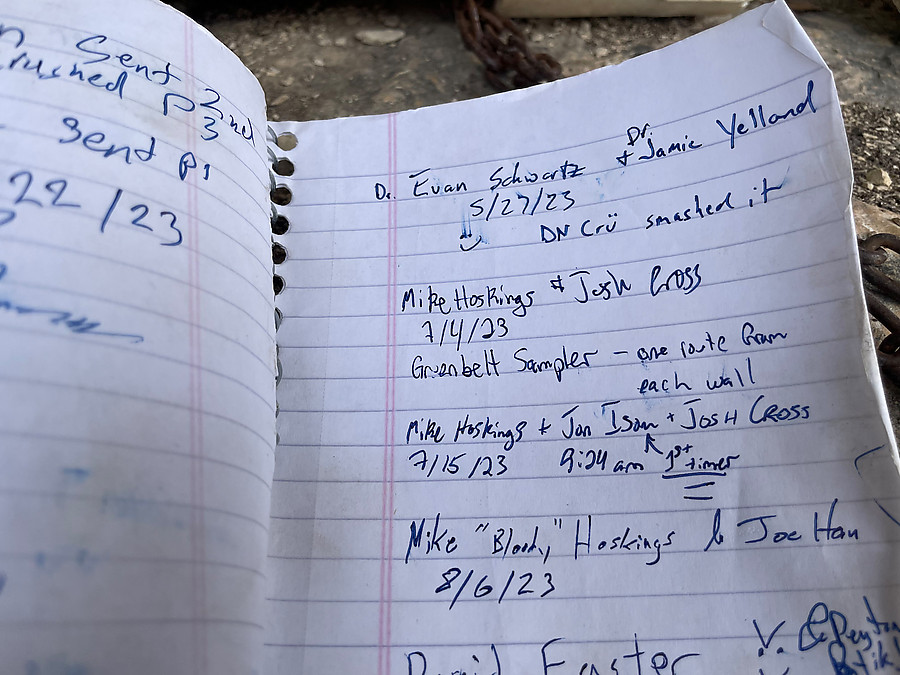 Sent 2nd
crushed P3
Sent P1
22/23
Dr. Evan Schwartz + Dr. Jamie Yelland
5/27/23
DN Crü smashed it
Mike Hoskings + Josh Cross
7/4/23
Greenbelt Sampler - one route from
each wall
Mike Hoskings + Jon Ison + JOSH CROSS
7/15/23 9:24 am 1st timer
Mike "Bloody" Hoskings & Joe Han
8/6/23